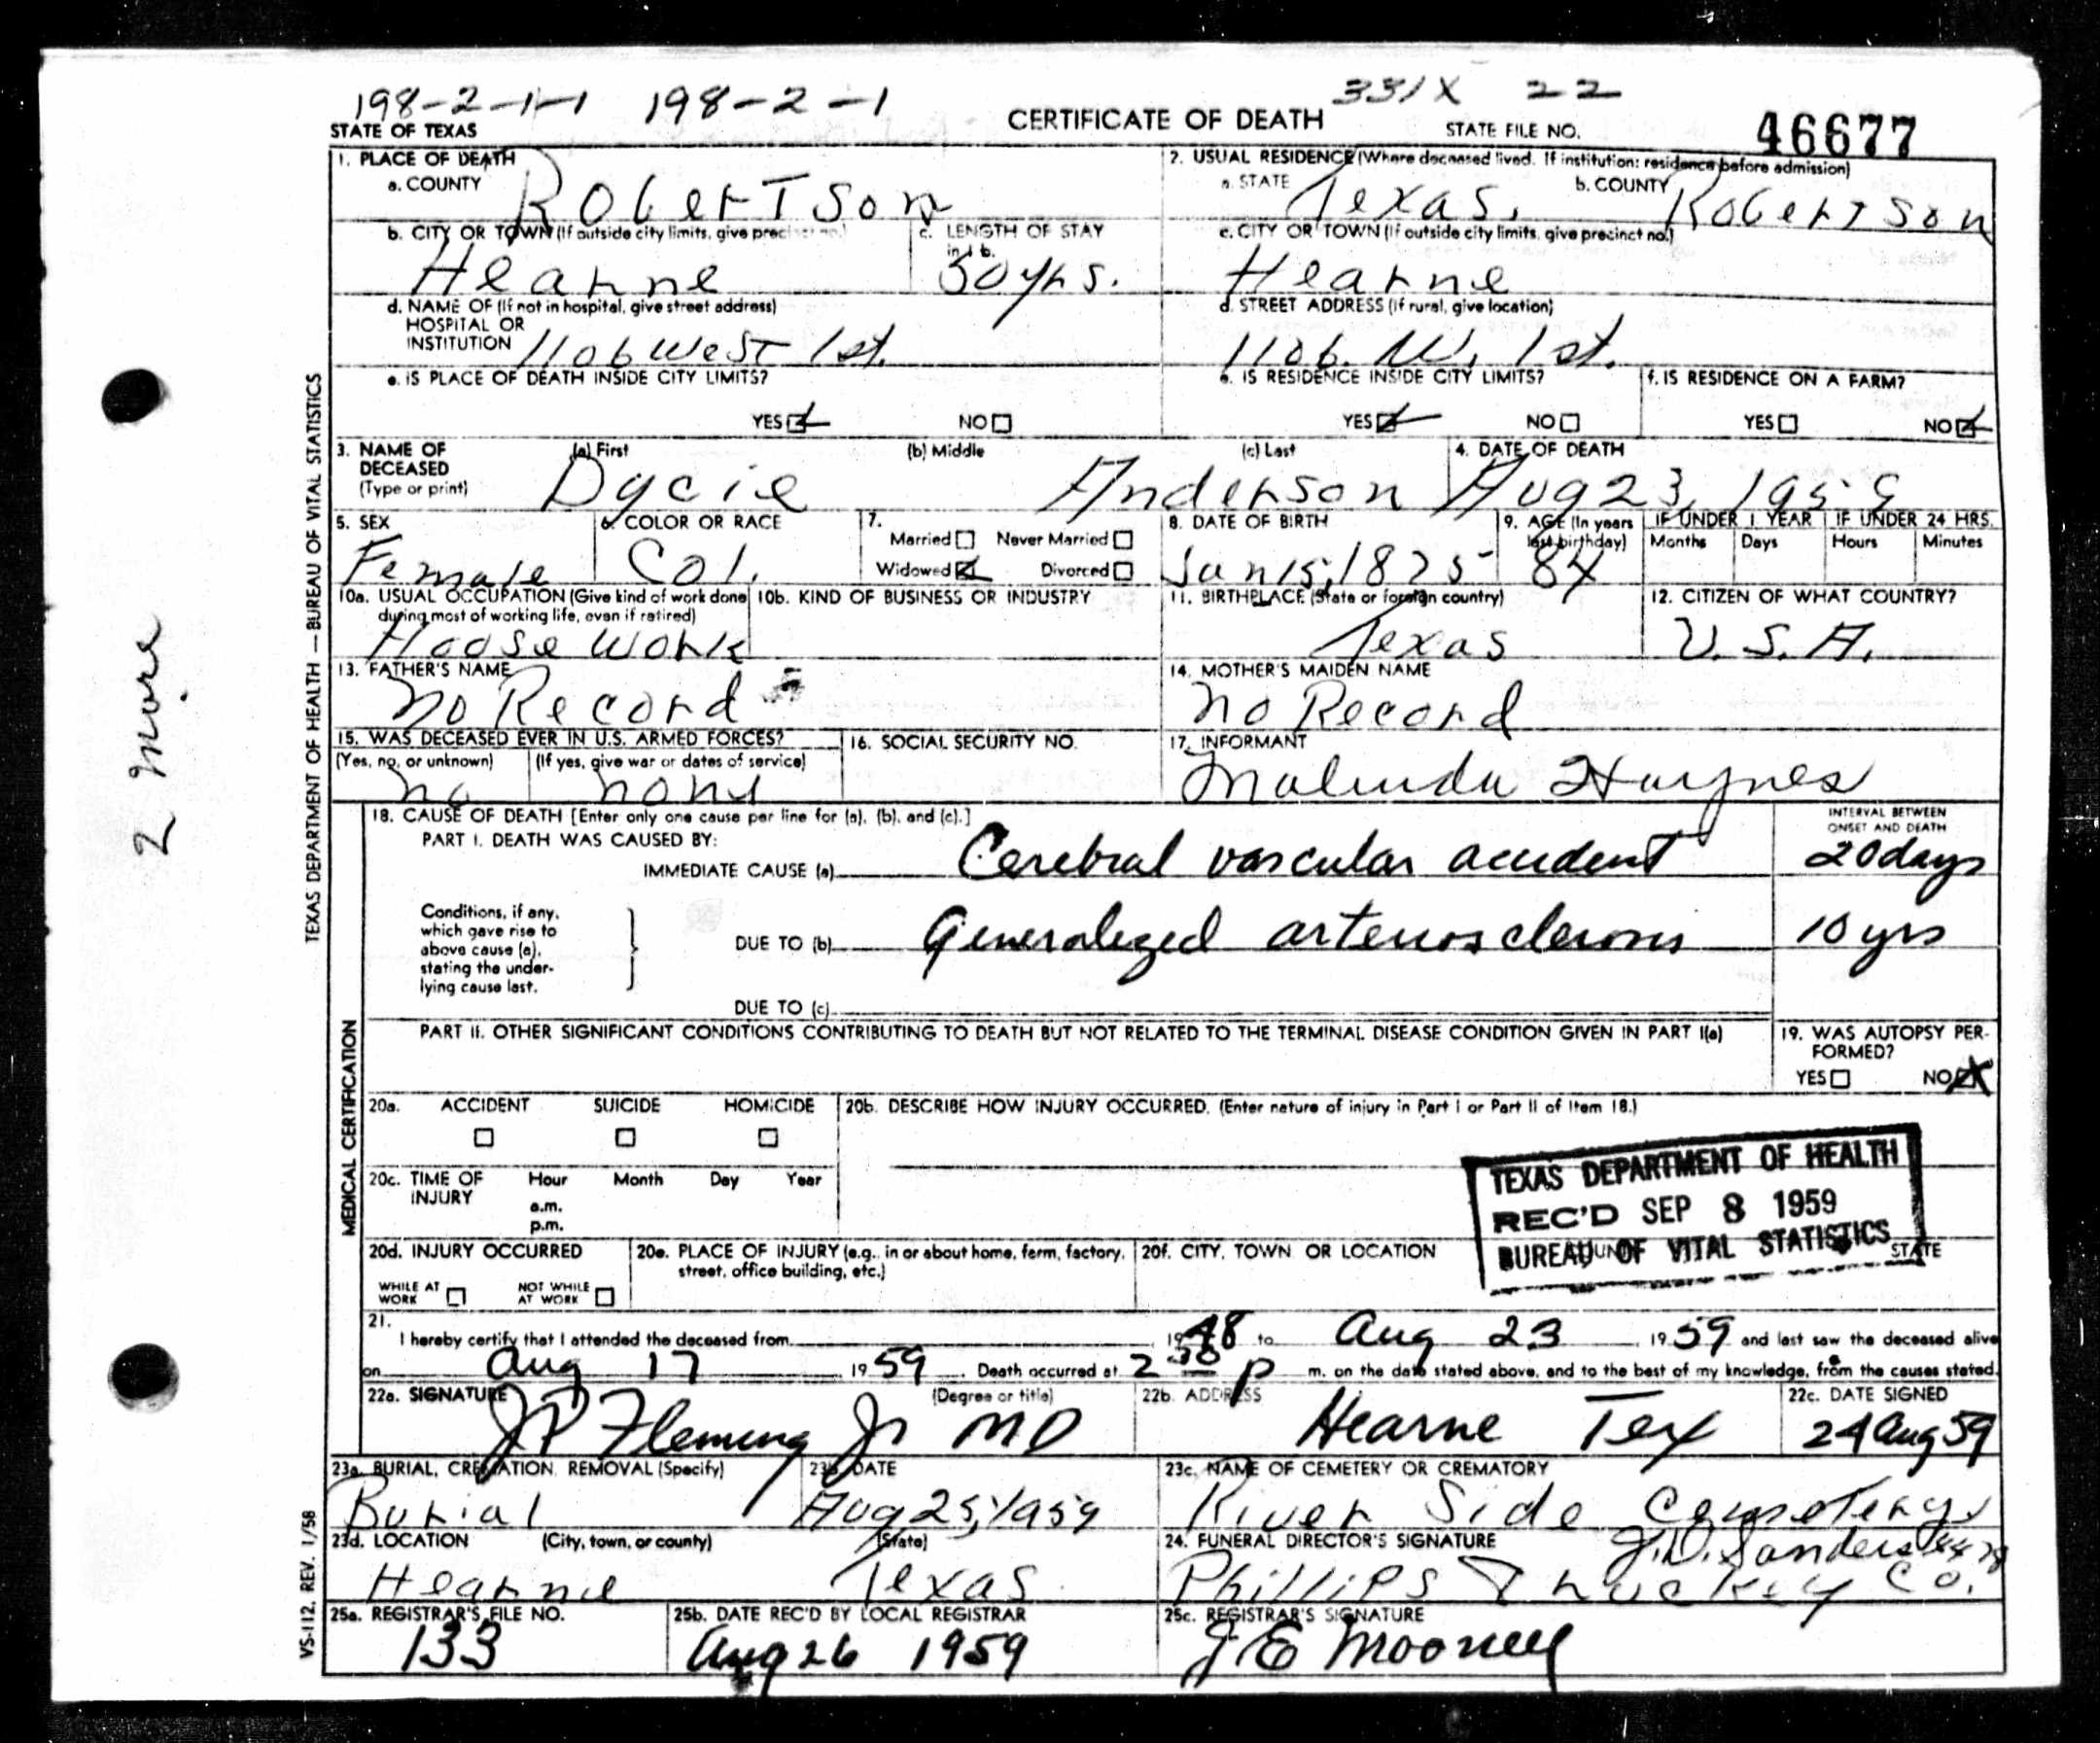 198-2-1-1 198-2-1 331X 22
STATE OF TEXAS CERTIFICATE OF DEATH STATE FILE NO. 46677
1. PLACE OF DEATH
a. COUNTY Robertson
2. USUAL RESIDENCE (Where deceased lived. If institution: residence before admission)
a. STATE Texas. b. COUNTY Robertson
b. CITY OR TOWN (If outside city limits, give precinct no.) Hearne
c. LENGTH OF STAY in 1 b. 50 yrs.
c. CITY OR TOWN (If outside city limits, give precinct no.) Hearne
d. NAME OF (If not in hospital, give street address)
HOSPITAL OR
INSTITUTION 1106 West 1st.
d. STREET ADDRESS (If rural, give location)
1106. W. 1st.
e. IS PLACE OF DEATH INSIDE CITY LIMITS?
YES NO
e. IS RESIDENCE INSIDE CITY LIMITS?
YES NO
f. IS RESIDENCE ON A FARM?
YES NO
3. NAME OF DECEASED (Type or print)
(a) First (b) Middle (c) Last
Dycie Anderson
4. DATE OF DEATH
Aug 23, 1959
5. SEX
Female
6. COLOR OR RACE
Col.
7.
Married Never Married
Widowed Divorced
8. DATE OF BIRTH
Jan 15, 1875
9. AGE (In years last birthday)
84
IF UNDER 1 YEAR IF UNDER 24 HRS.
Months Days Hours Minutes
10a. USUAL OCCUPATION (Give kind of work done during most of working life, even if retired)
House Work
10b. KIND OF BUSINESS OR INDUSTRY
11. BIRTHPLACE (State or foreign country)
Texas
12. CITIZEN OF WHAT COUNTRY?
U. S. A.
13. FATHER'S NAME
No Record
14. MOTHER'S MAIDEN NAME
No Record
15. WAS DECEASED EVER IN U.S. ARMED FORCES?
(Yes, no, or unknown) (If yes, give war or dates of service)
no none
16. SOCIAL SECURITY NO.
17. INFORMANT
Malinda Haynes
18. CAUSE OF DEATH [Enter only one cause per line for (a), (b), and (c).]
INTERVAL BETWEEN
ONSET AND DEATH
PART I. DEATH WAS CAUSED BY:
IMMEDIATE CAUSE (a) Cerebral vascular accident 20 days
Conditions, if any,
which gave rise to
above cause (a),
stating the under-
lying cause last.
DUE TO (b) Generalized arteriosclerosis 10 yrs
DUE TO (c)
PART II. OTHER SIGNIFICANT CONDITIONS CONTRIBUTING TO DEATH BUT NOT RELATED TO THE TERMINAL DISEASE CONDITION GIVEN IN PART I(a)
19. WAS AUTOPSY PER-
FORMED?
YES NO
20a. ACCIDENT SUICIDE HOMICIDE
20b. DESCRIBE HOW INJURY OCCURRED. (Enter nature of injury in Part I or Part II of Item 18.)
20c. TIME OF INJURY Hour Month Day Year
a.m.
p.m.
TEXAS DEPARTMENT OF HEALTH
REC'D SEP 8 1959
BUREAU OF VITAL STATISTICS
20d. INJURY OCCURRED
WHILE AT WORK NOT WHILE AT WORK
20e. PLACE OF INJURY (e.g., in or about home, farm, factory,
street, office building, etc.)
20f. CITY, TOWN OR LOCATION STATE
21.
I hereby certify that I attended the deceased from 1948 to Aug 23 1959 and last saw the deceased alive
on Aug 17 1959. Death occurred at 2 30 p m. on the date stated above, and to the best of my knowledge, from the causes stated.
22a. SIGNATURE (Degree or title)
JP Fleming Jr MD
22b. ADDRESS
Hearne Tex
22c. DATE SIGNED
24 Aug 59
23a. BURIAL, CREMATION, REMOVAL (Specify)
Burial
23b. DATE
Aug 25, 1959
23c. NAME OF CEMETERY OR CREMATORY
River Side Cemetery
23d. LOCATION (City, town, or county) (State)
Hearne Texas
24. FUNERAL DIRECTOR'S SIGNATURE J.D. Sanders
Phillips & Luckey Co.
25a. REGISTRAR'S FILE NO.
133
25b. DATE REC'D BY LOCAL REGISTRAR
Aug 26 1959
25c. REGISTRAR'S SIGNATURE
J E Mooney
TEXAS DEPARTMENT OF HEALTH — BUREAU OF VITAL STATISTICS
MEDICAL CERTIFICATION
VS-112, REV. 1/58
2 more